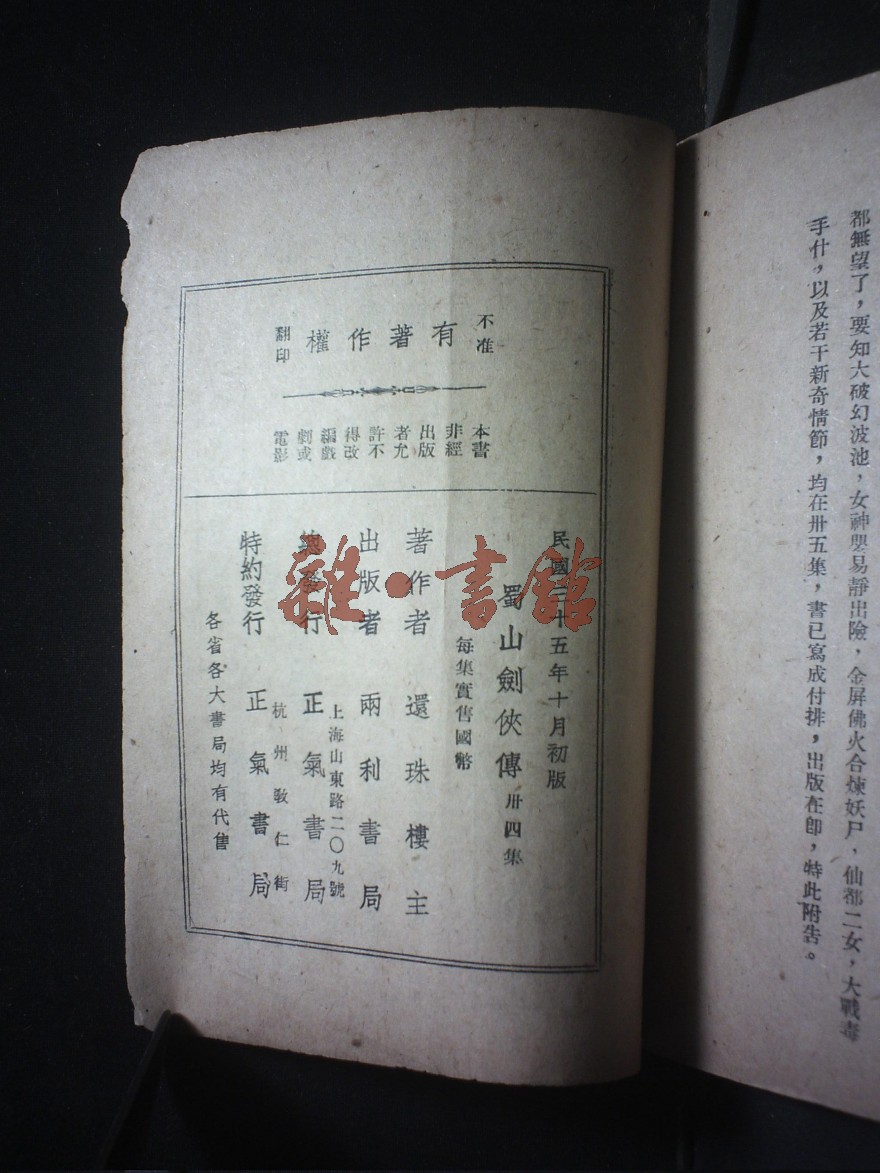 都無望了，要知大破幻波池，女神嬰易靜出險，金屏佛火合煉妖尸，仙都二女，大戰毒
手什，以及若干新奇情節，均在卅五集，書已寫成付排，出版在卽，特此附告。
不准
有著作權
翻印
本書
非經
出版
者允
許不
得改
編戲
劇或
電影
民國三十五年十月初版
蜀山劍俠傳 卅四集
每集實售國幣
著作者 還珠樓主
出版者 兩利書局
上海山東路二〇九號
總發行 正氣書局
杭州敎仁街
特約發行 正氣書局
各省各大書局均有代售
雜·書館